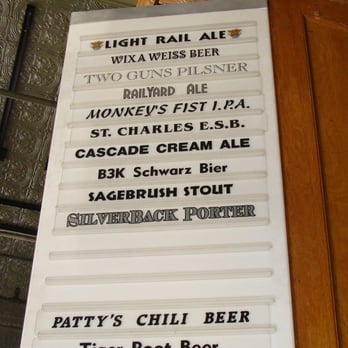 LIGHT RAIL ALE
WIXA WEISS BEER
TWO GUNS PILSNER
RAILYARD ALE
MONKEY'S FIST I.P.A.
ST. CHARLES E.S.B.
CASCADE CREAM ALE
B3K Schwarz Bier
SAGEBRUSH STOUT
SILVERBACK PORTER
PATTY'S CHILI BEER
Tiger Root Beer